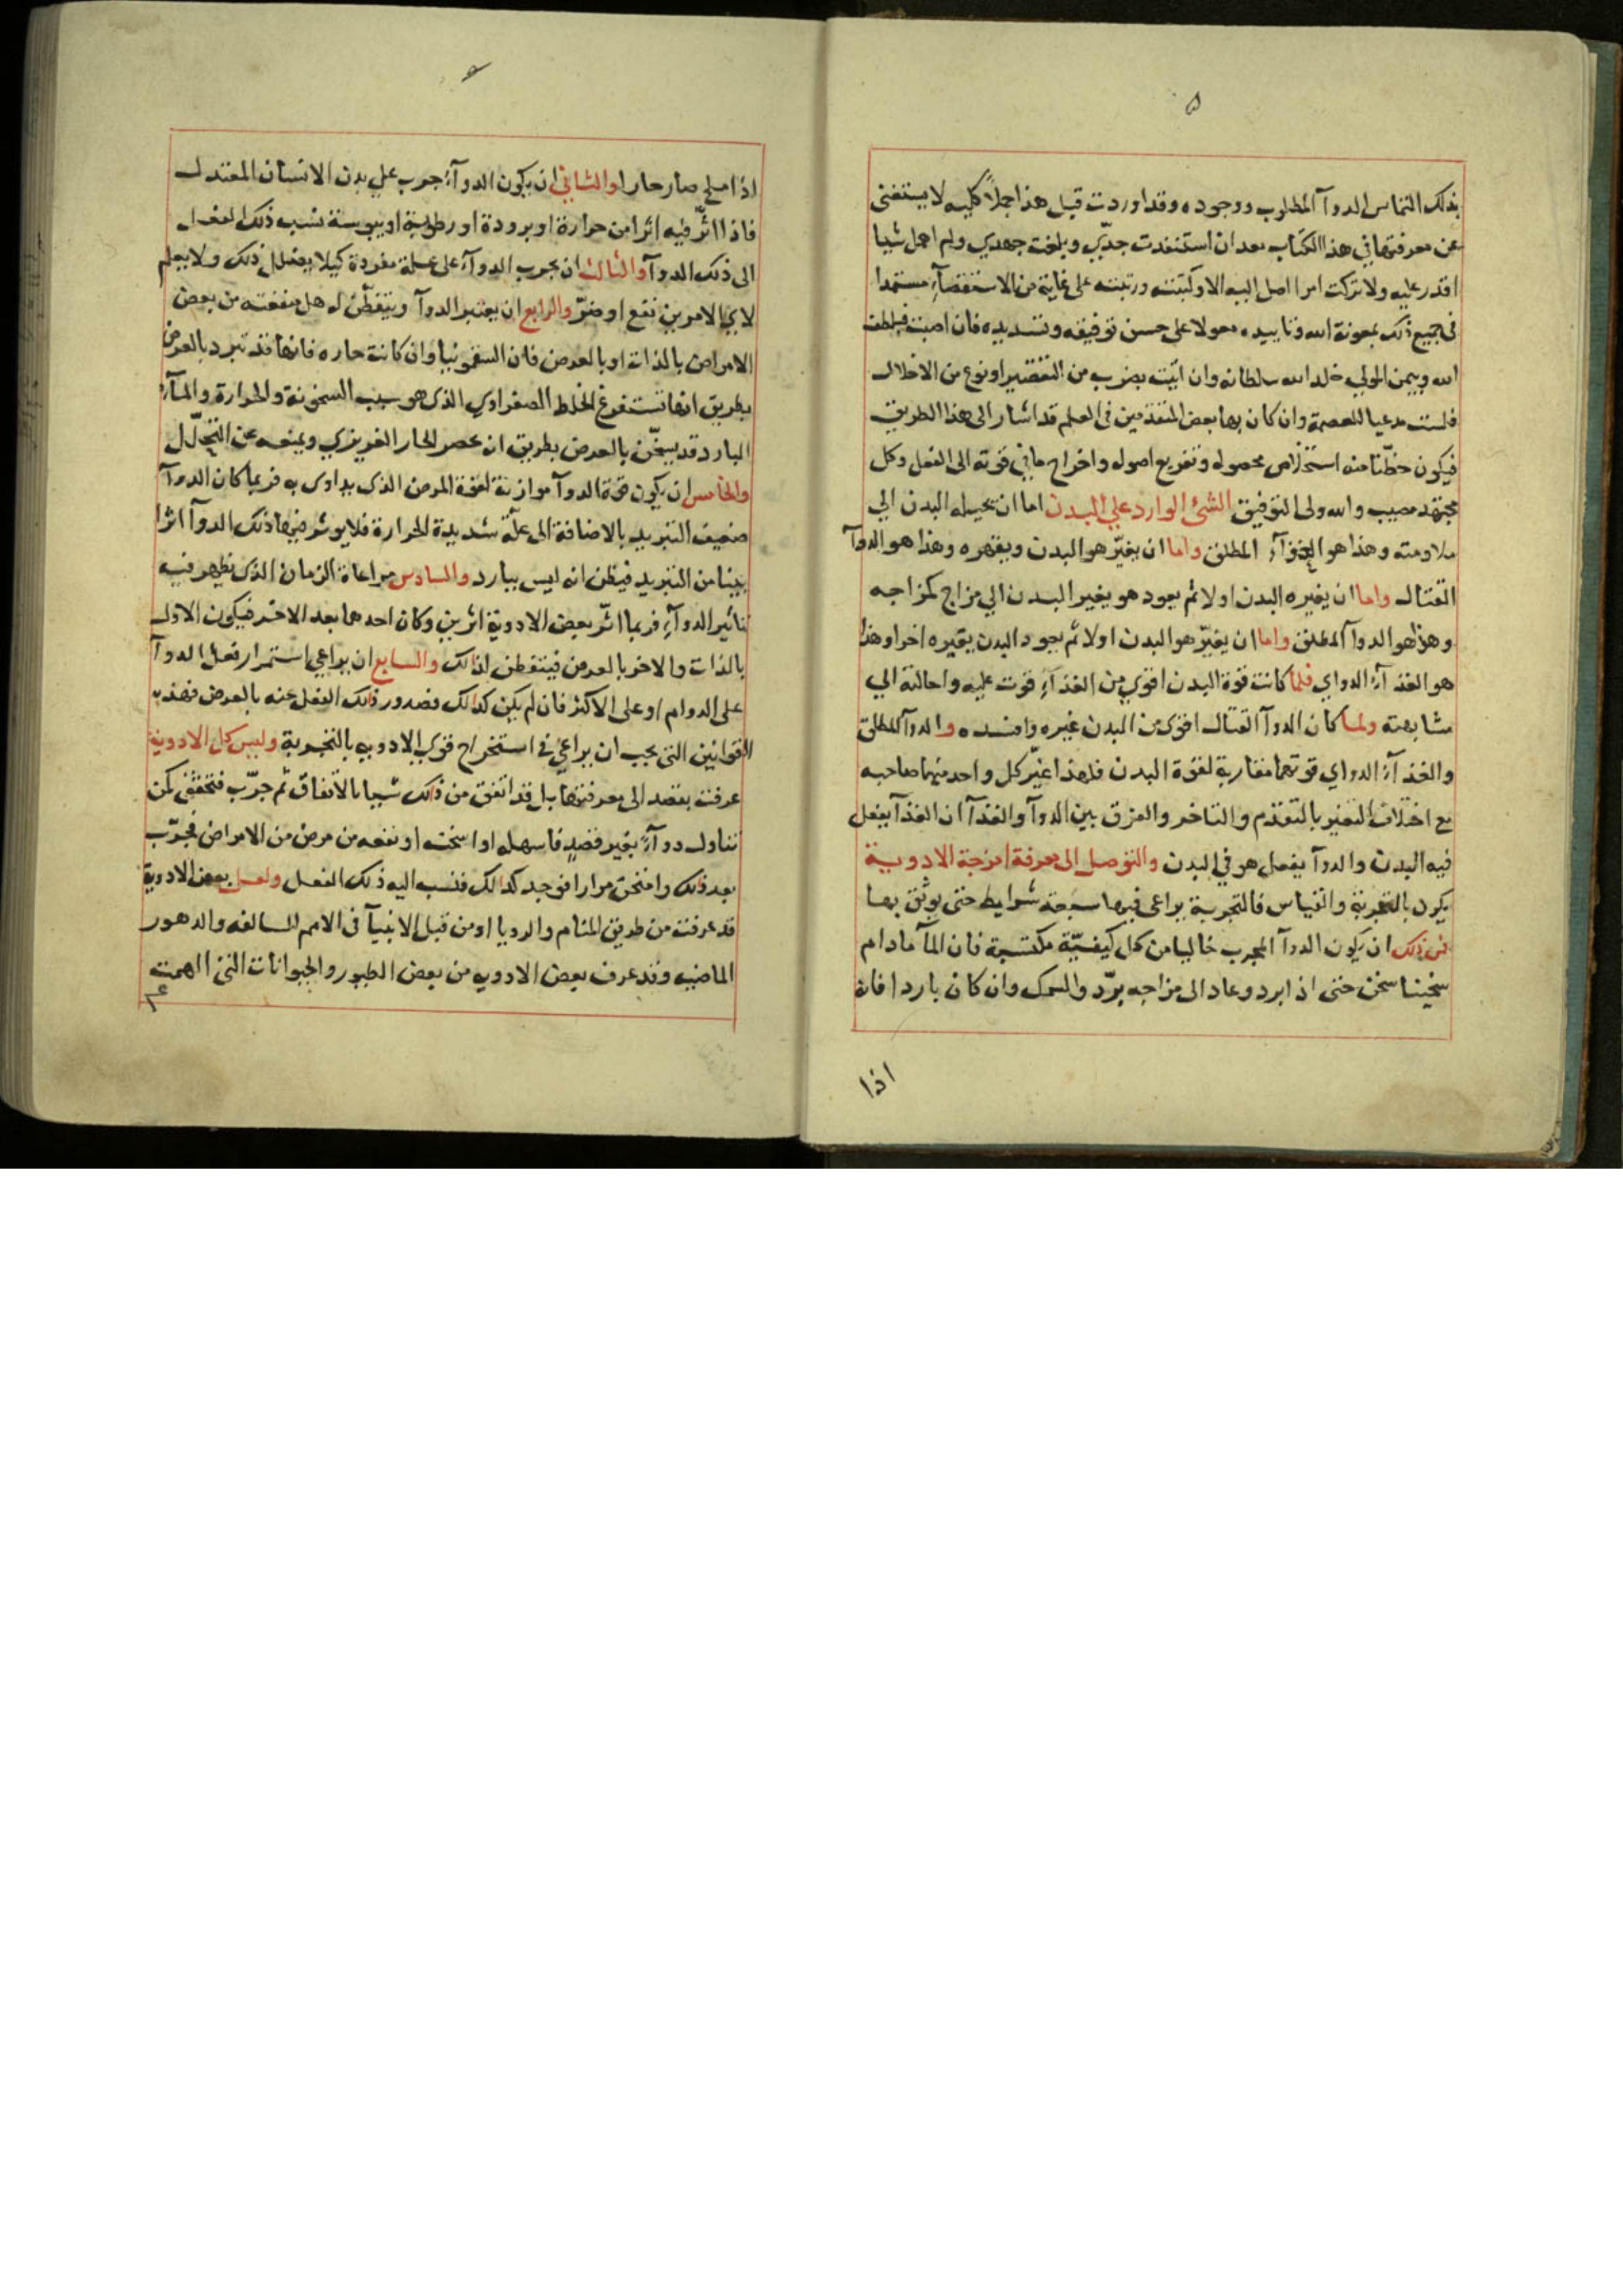 ۵
بذلك التماس الدوآ المطلوب ووجوده وقد اوردت قبل هذا جملاً كليه لا يستغنى
عن معرفتها في هذا الكتاب بعد ان استنفدت جدّي وبلغت جهدي ولم اهمل شيا
اقدر عليه ولا تركت امرا اصل اليه الا وكتبته ورتبته على غاية من الاستقصآءِ مستمدا
في جميع ذلك بمعونة الله وتاييده معولا على حسن توفيقه وتسديده فان اصبت فبلطف
الله وبيمن المولي خلد الله سلطانه وان اتيت بضرب من التقصير او نوع من الاخلال
فلست مدعيا للعصمة وان كان بها بعض المتقدمين في العلم قد اشار الى هذا الطريق
فيكون حظّنا منه استخلاص محصوله وتفريع اصوله واخراج ما في قوته الى الفعل وكل
مجتهد مصيب والله ولى التوفيق الشئ الوارد علي البدن اما ان يحيله البدن الي
ملاومته وهذا هو الغذآءِ المطلق واما ان يغيّر هو البدن ويقهره وهذا هو الدوآ
القتال واما ان يغيره البدن اولا ثم يعود هو يغير البدن الي مزاج كمزاجه
وهذا هو الدوآ المطلق واما ان يغيّر هو البدن اولا ثم يعود البدن يغيره اخرا وهذا
هو الغذآءِ الدواي فلما كانت قوة البدن اقوي من الغذآءِ قوت عليه واحالته الي
مشابهته ولما كان الدوآ القتال اقوى من البدن غيره وافسده والدوآ المطلق
والغذآءِ الدواي قوتهما مقاربة لقوة البدن فلهذا غيّر كل واحد منهما صاحبه
مع اختلاف التغير بالتقدم والتاخر والفرق بين الدوآ والغذآ ان الغذآ يفعل
فيه البدن والدوآ يفعل هو في البدن والتوصل الى معرفة امزجة الادوية
يكون بالتجربة والقياس فالتجربة يراعى فيها سبعة شرايط حتى يوثق بها
فمن ذلك ان يكون الدوآ المجرب خاليا من كل كيفيّة مكتسبة فان المآ مادام
سخينا سخن حتى اذا برد وعاد الى مزاجه برّد والسمك وان كان باردا فانه
اذا
اذا ملح صار حارا والثاني ان يكون الدوآءِ جرب علي بدن الانسان المعتدل
فاذا اثّر فيه اثرا من حرارة او برودة او رطوبة او يبوسة نسب ذلك الفعل
الى ذلك الدوآ والثالث ان يجرب الدوآءِ على علة مفردة كيلا يضلل ذلك ولا يعلم
لاي الامرين نفع او ضرّ والرابع ان يعتبر الدوآ ويتفطّن له هل منفعته من بعض
الامراض بالذات او بالعرض فان السقمونيا وان كانت حاره فانها قد تبرد بالعرض
بطريق انها تستفرغ الخلط الصفراوي الذي هو سبب السخونة والحرارة والمآءِ
البارد قد يسخّن بالعرض بطريق ان عصر الحار الغريزي ويمنعه عن التحلّل
والخامس ان يكون قوة الدوآ موازنة لقوة المرض الذي يداوى به فربما كان الدوآ
ضعيف التبريد بالاضافة الى علّة شديدة الحرارة فلا يوثر فيها ذلك الدوآ اثرا
بيّنا من التبريد فيظن انه ليس ببارد والسادس مراعاة الزمان الذي يظهر فيه
تاثير الدوآءِ فربما اثّر بعض الادوية اثرين وكان احدهما بعد الاخر فيكون الاول
بالذات والاخر بالعرض فيتفطن لذالك والسابع ان يراعي استمرار فعل الدوآ
على الدوام او على الاكثر فان لم يكن كذالك فصدور ذالك الفعل عنه بالعرض فهذه
القوانين التي يجب ان يراعي في استخراج قوي الادويه بالتجربة وليس كل الادوية
عرفت بقصد الى معرفتها بل قد اتفق من ذالك شيا بالاتفاق ثم جرّب فتحقق كمن
تناول دوآءً بغير قصدٍ فاسهله او اسخنه او نفعه من مرض من الامراض فجرّب
بعد ذلك وامتحن مرارا فوجد كذالك فنسب اليه ذلك الفعل ولعل بعض الادوية
قد عرفت من طريق المنام والرويا او من قبل الانبيآ في الامم السالفه والدهور
الماضيه وقد عرف بعض الادويه من بعض الطيور والحيوانات التي الهمت